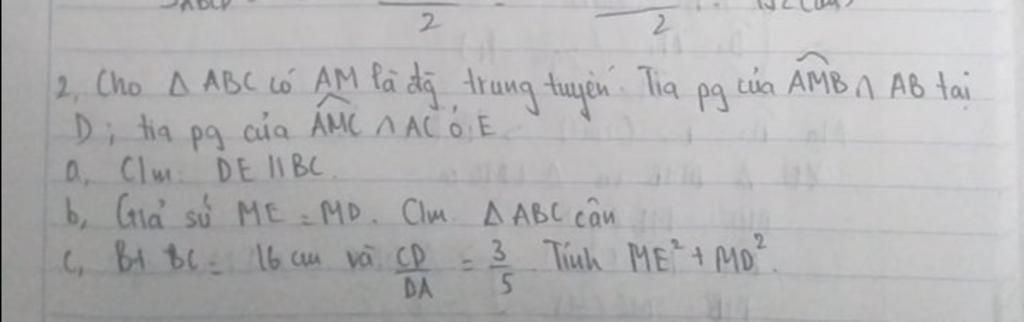 2
2
2, Cho Δ ABC có AM là đg trung tuyến. Tia pg của AMB ∩ AB tại
D; tia pg của AMC ∩ AC ở E
a, C/m: DE // BC.
b, Giả sử ME = MD. C/m Δ ABC cân
c, Bt BC = 16 cm và CD/DA = 3/5 Tính ME² + MD².